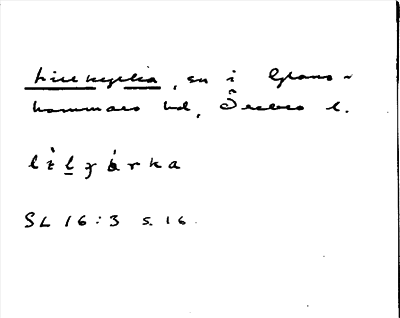 Lillkyrka, sn i Glans-
hammars hd, Örebro l.
SL 16:3 s. 16